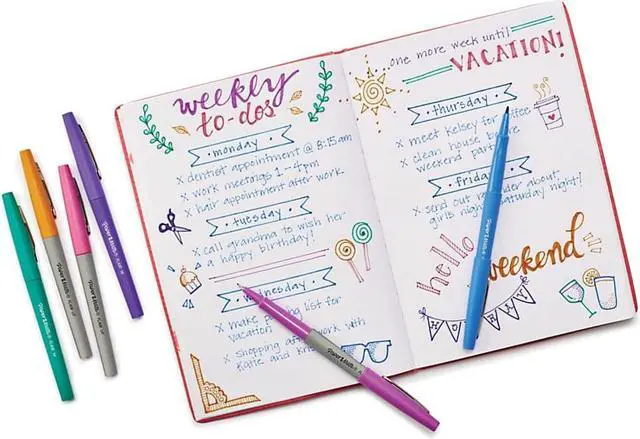 weekly
to-dos
monday
x dentist appointment @ 8:15am
x work meetings 1-4pm
x hair appointment after work
tuesday
x call grandma to wish her
a happy birthday!
x make list for
vacation
x shopping with
Katie and
one more week until
VACATION!
thursday
x meet Kelsey for
x clean house
weekend party
x send out about
girls night Saturday night!
hello
weekend
HOORAY
Paper Mate
Paper Mate
Paper Mate
Paper Mate
Paper Mate
Paper Mate